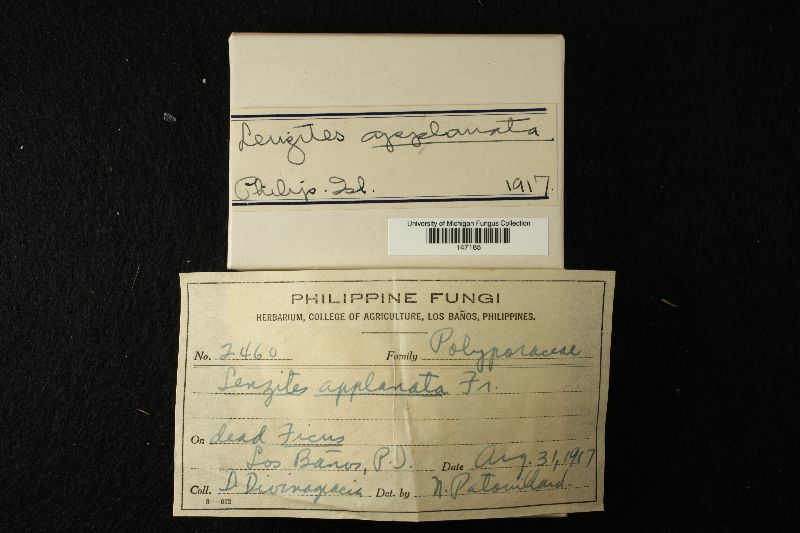 Lenzites applanata
Philip. Isl. 1917.
University of Michigan Fungus Collection
147185
PHILIPPINE FUNGI
HERBARIUM, COLLEGE OF AGRICULTURE, LOS BAÑOS, PHILIPPINES.
No. 2460 Family Polyporaceae
Lenzites applanata Fr.
On dead Ficus
Los Baños, P.I. Date Aug. 31, 1917
Coll. D. Divinagracia Det. by N. Patouillard.
8—072